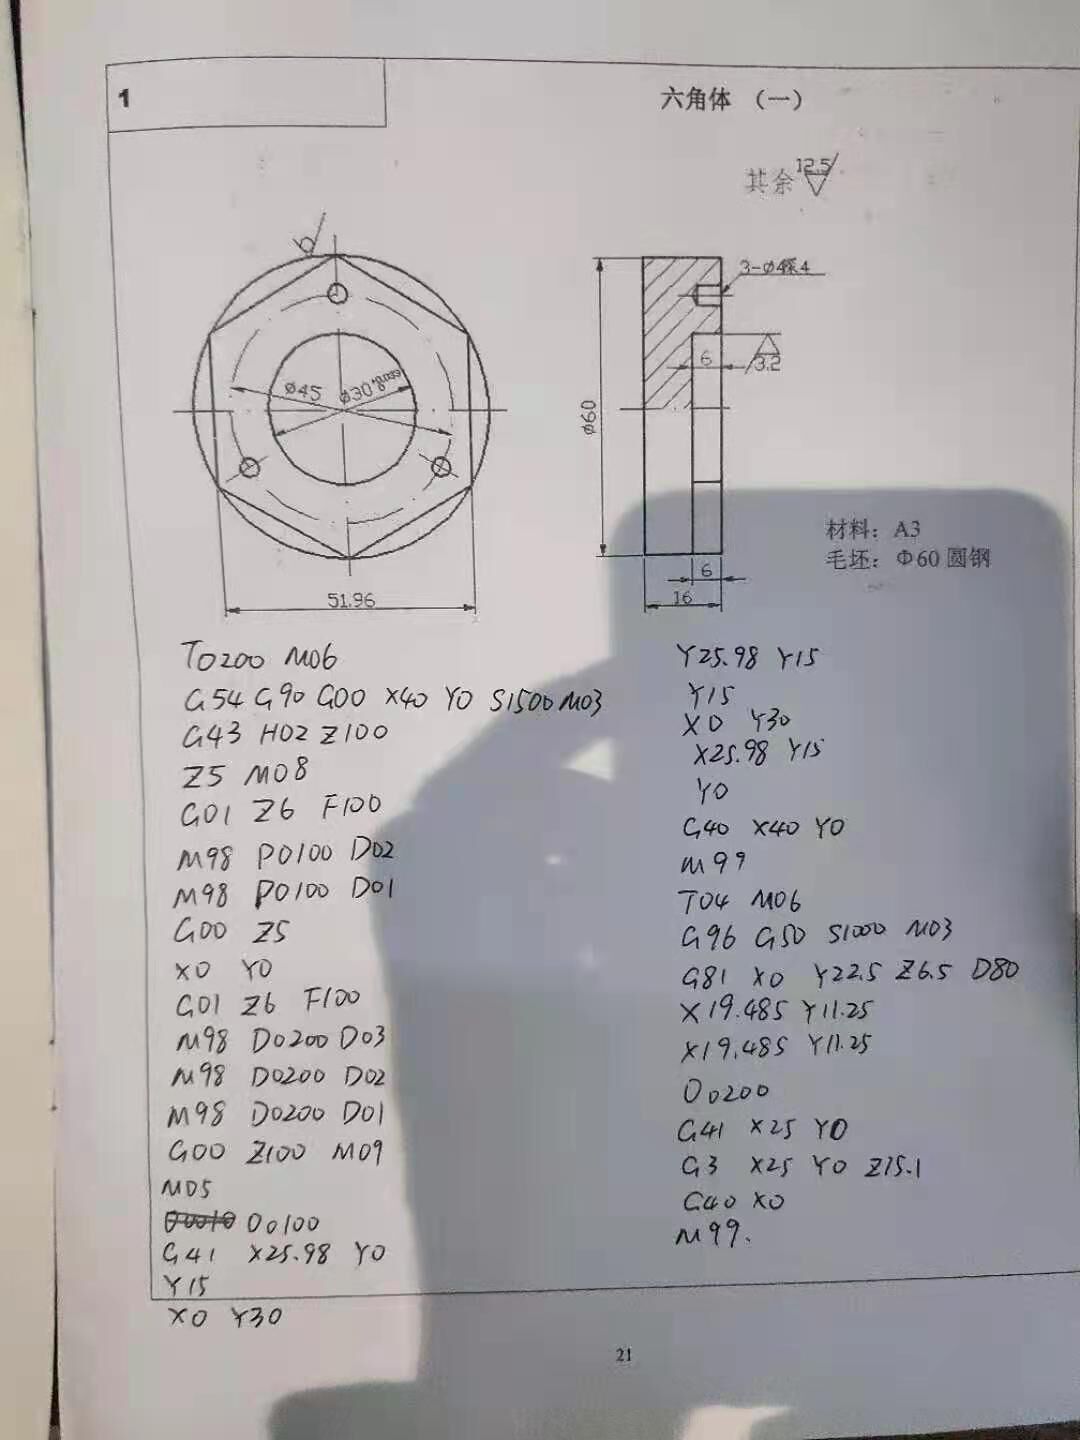 1
六角体 （一）
其余 12.5
3-Ø4深4
Ø45
6
3.2
Ø60
材料：A3
毛坯：Φ60 圆钢
6
16
51.96
T0200 M06
G54 G90 G00 X40 Y0 S1500 M03
G43 H02 Z100
Z5 M08
G01 Z6 F100
M98 P0100 D02
M98 P0100 D01
G00 Z5
X0 Y0
G01 Z6 F100
M98 D0200 D03
M98 D0200 D02
M98 D0200 D01
G00 Z100 M09
M05
O0100
G41 X25.98 Y0
Y15
X0 Y30
Y25.98 Y15
Y15
X0 Y30
X25.98 Y15
Y0
G40 X40 Y0
M99
T04 M06
G96 G50 S1000 M03
G81 X0 Y22.5 Z6.5 D80
X19.485 Y11.25
X19.485 Y11.25
O0200
G41 X25 Y0
G3 X25 Y0 Z15.1
G40 X0
M99.
21